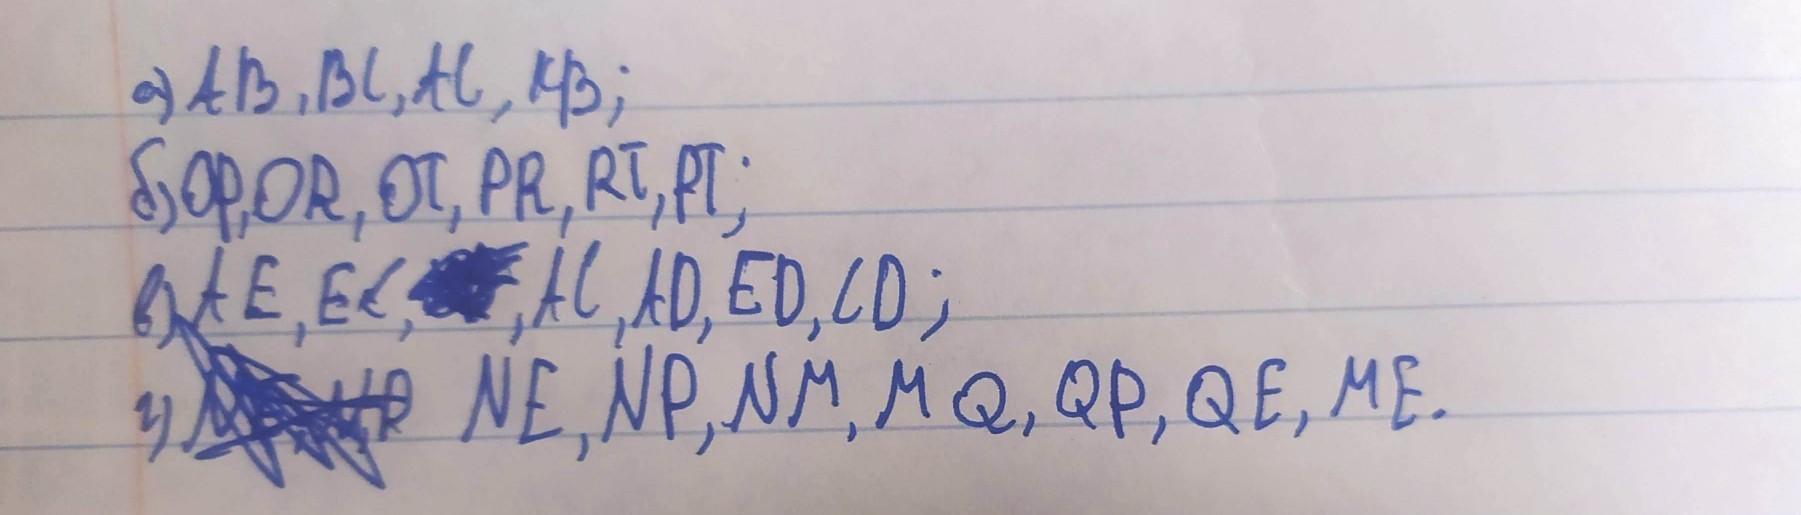 а) AB, BC, AC, KB;
б) OP, OR, OT, PR, RT, PT;
в) AE, EC, AC, AD, ED, CD;
г) NE, NP, NM, MQ, QP, QE, ME.